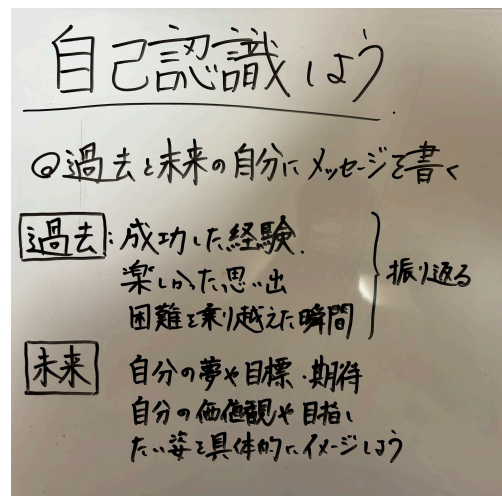 自己認識しよう.
◎過去と未来の自分にメッセージを書く
過去:成功した経験.
楽しかった思い出
困難を乗り越えた瞬間
振り返る
未来 自分の夢や目標・期待
自分の価値観や目指し
たい姿を具体的にイメージしよう